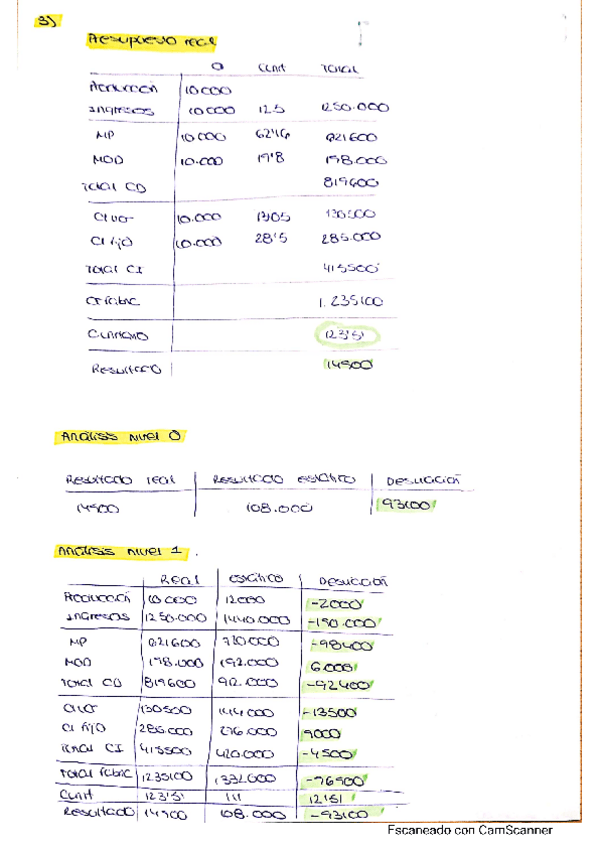 3)
Presupuesto real
Q Cunit TOTAL
Producción 10.000
Ingresos 10.000 125 1250.000
MP 10.000 62'16 621600
MOD 10.000 19'8 198.000
Total CD 819600
CI var 10.000 13'05 130500
CI fijo 10.000 28'5 285.000
Total CI 415500
CT fabric 1.235100
C unitario 123'51
Resultado 14900
Análisis nivel 0
Resultado real Resultado estático Desviación
14900 108.000 93100
Análisis nivel 1.
Real estático Desviación
Producción 10.000 12000 -2000
Ingresos 1250.000 1440.000 -190.000
MP 621600 720.000 -98400
MOD 198.000 192.000 6.000
Total CD 819600 912.000 -92400
CI var 130500 144.000 -13500
CI fijo 285.000 276.000 9000
Total CI 415500 420.000 -4500
Total fabric 1235100 1332.000 -96900
Cunit 123'51 111 12'51
Resultado 14900 108.000 -93100
Escaneado con CamScanner